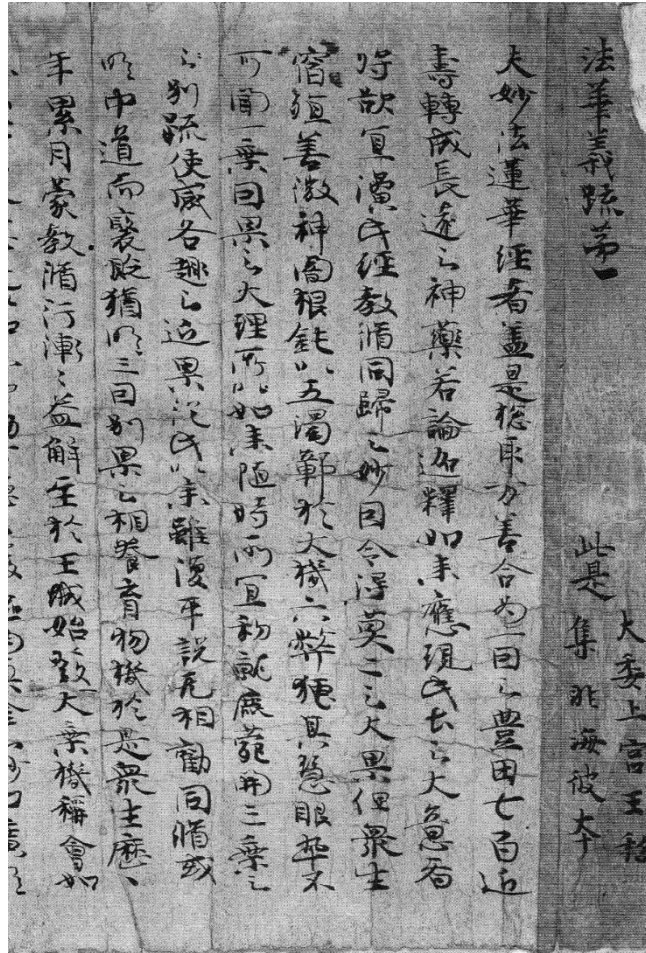 法華義疏第一
此是
大委上宮王私
集非海彼本
夫妙法蓮華経者盖是惣取万善合為一因之豊田七百近
壽轉成長遠之神藥若論迦釋如来應現此土之大意者
将欲宜演此經教脩同歸之妙因令得莫二之大果但衆生
宿殖善微神闇根鈍以五濁鄣於大機六弊掩其慧眼卒不
可聞一乗因果之大理所以如来随時所宜初就鹿菀開三乗之
別疏使感各趣之近果従此以来雖復平説无相勧同脩或
明中道而褒貶猶明三因別果之相養育物機於是衆生歴
年累月蒙教脩行漸々益解至於王城始發大乗機稱會如